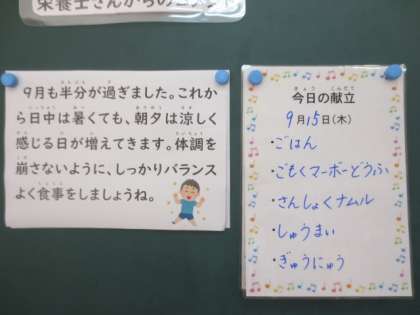 栄養士さんからの
9月も半分が過ぎました。これか
ら日中は暑くても、朝夕は涼しく
感じる日が増えてきます。体調を
崩さないように、しっかりバランス
よく食事をしましょうね。
今日の献立
9月15日(木)
・ごはん
・ごもくマーボーどうふ
・さんしょくナムル
・しゅうまい
・ぎゅうにゅう